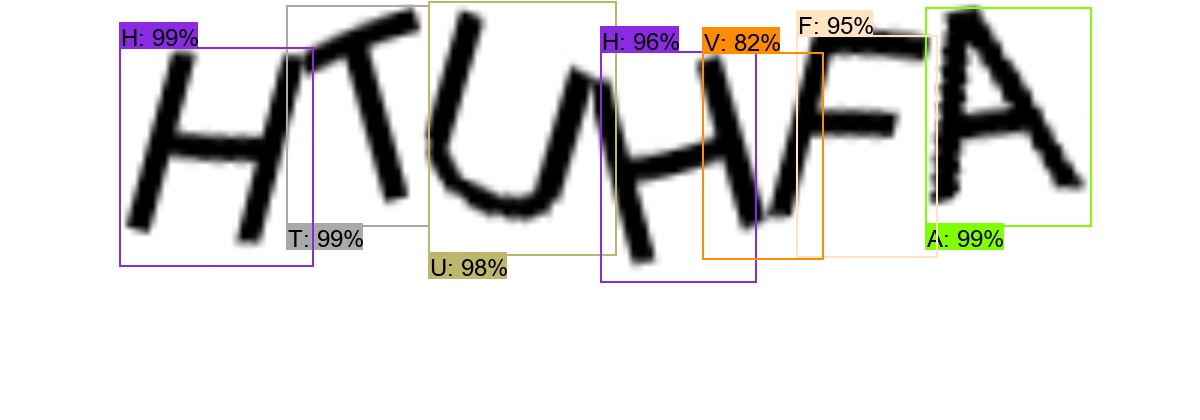 H: 99% T: 99% U: 98% H: 96% V: 82% F: 95% A: 99%
HTUHFA